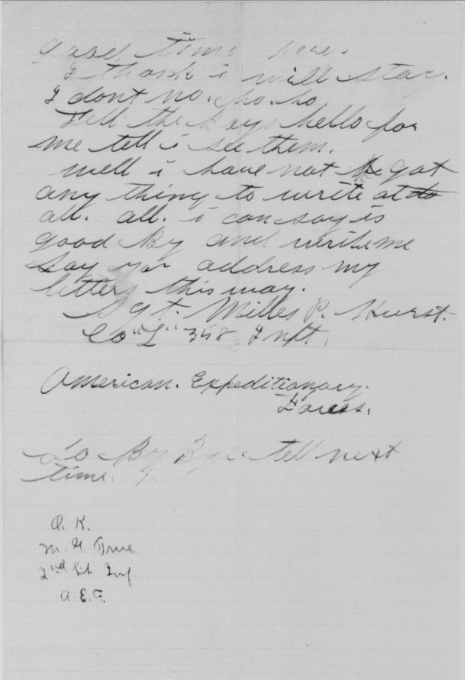 good time here.
I thank i will stay.
I dont no. ho. ho
Tell the boys hello for
me tell i see them.
well i have not got
any thing to write at
all. all. i can say is
good by and write me
say you address my
letters this way.
Sgt. Milles P. Hurst.
Co "L" 358 Inft.
American. Expeditionary.
Forces.
So By By tell next
time.
O. K.
2nd Lt Inf
A.E.F.